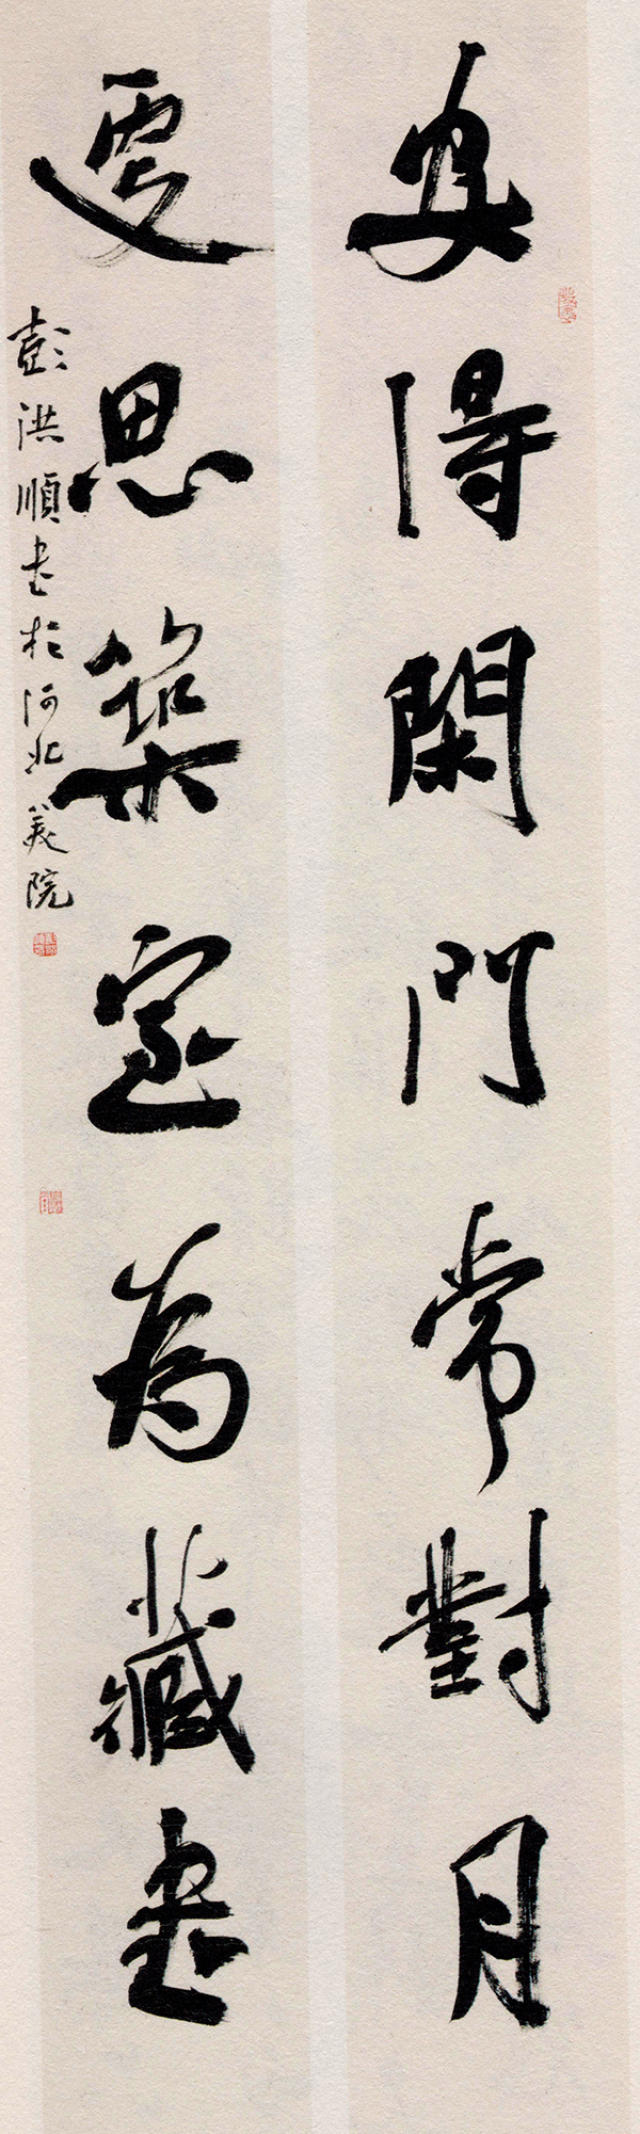 安得閑門常對月
還思築室為藏書
彭洪順書於河北美院